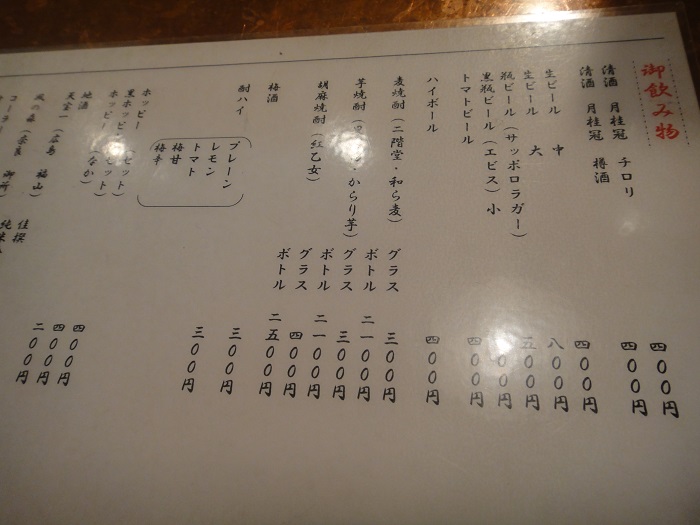 御飲み物
清酒 月桂冠 チロリ 四〇〇円
清酒 月桂冠 樽酒 四〇〇円
生ビール 中 四〇〇円
生ビール 大 八〇〇円
瓶ビール（サッポロラガー） 五〇〇円
黒瓶ビール（エビス）小 〇〇円
トマトビール 四〇〇円
ハイボール 四〇〇円
麦焼酎（二階堂・和ら麦） グラス 三〇〇円
ボトル 二一〇〇円
芋焼酎（・からり芋） グラス 三〇〇円
ボトル 二一〇〇円
胡麻焼酎（紅乙女） グラス 四〇〇円
ボトル 二五〇〇円
梅酒 三〇〇円
酎ハイ 三〇〇円
プレーン
レモン
トマト
梅甘
梅辛
ホッピー 四〇〇円
黒ホッピー（セット） 四〇〇円
ホッピー（なか） 二〇〇円
地酒
天宝一（広島 福山）
風の森（奈良 御所）